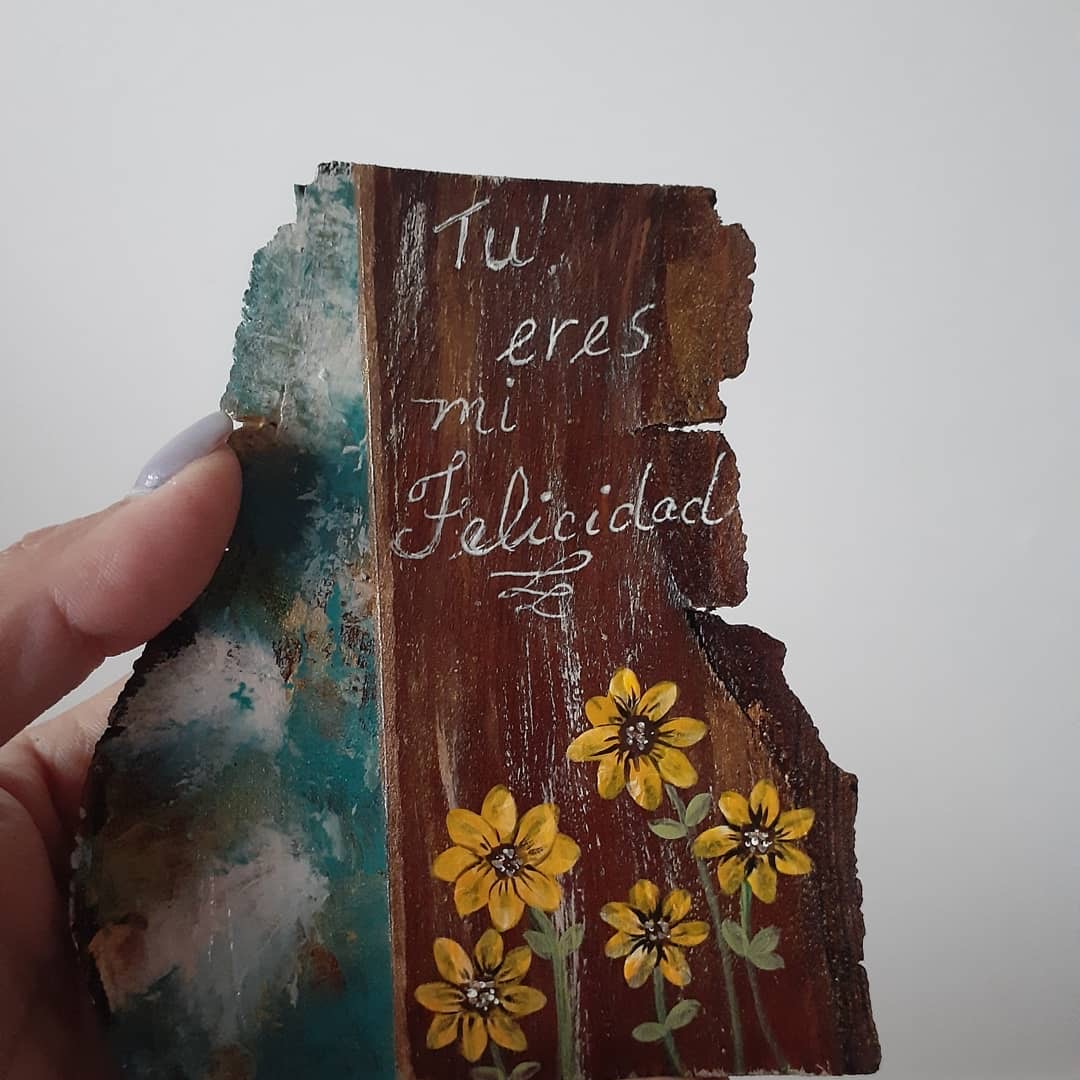 Tu'
eres
mi
Felicidad